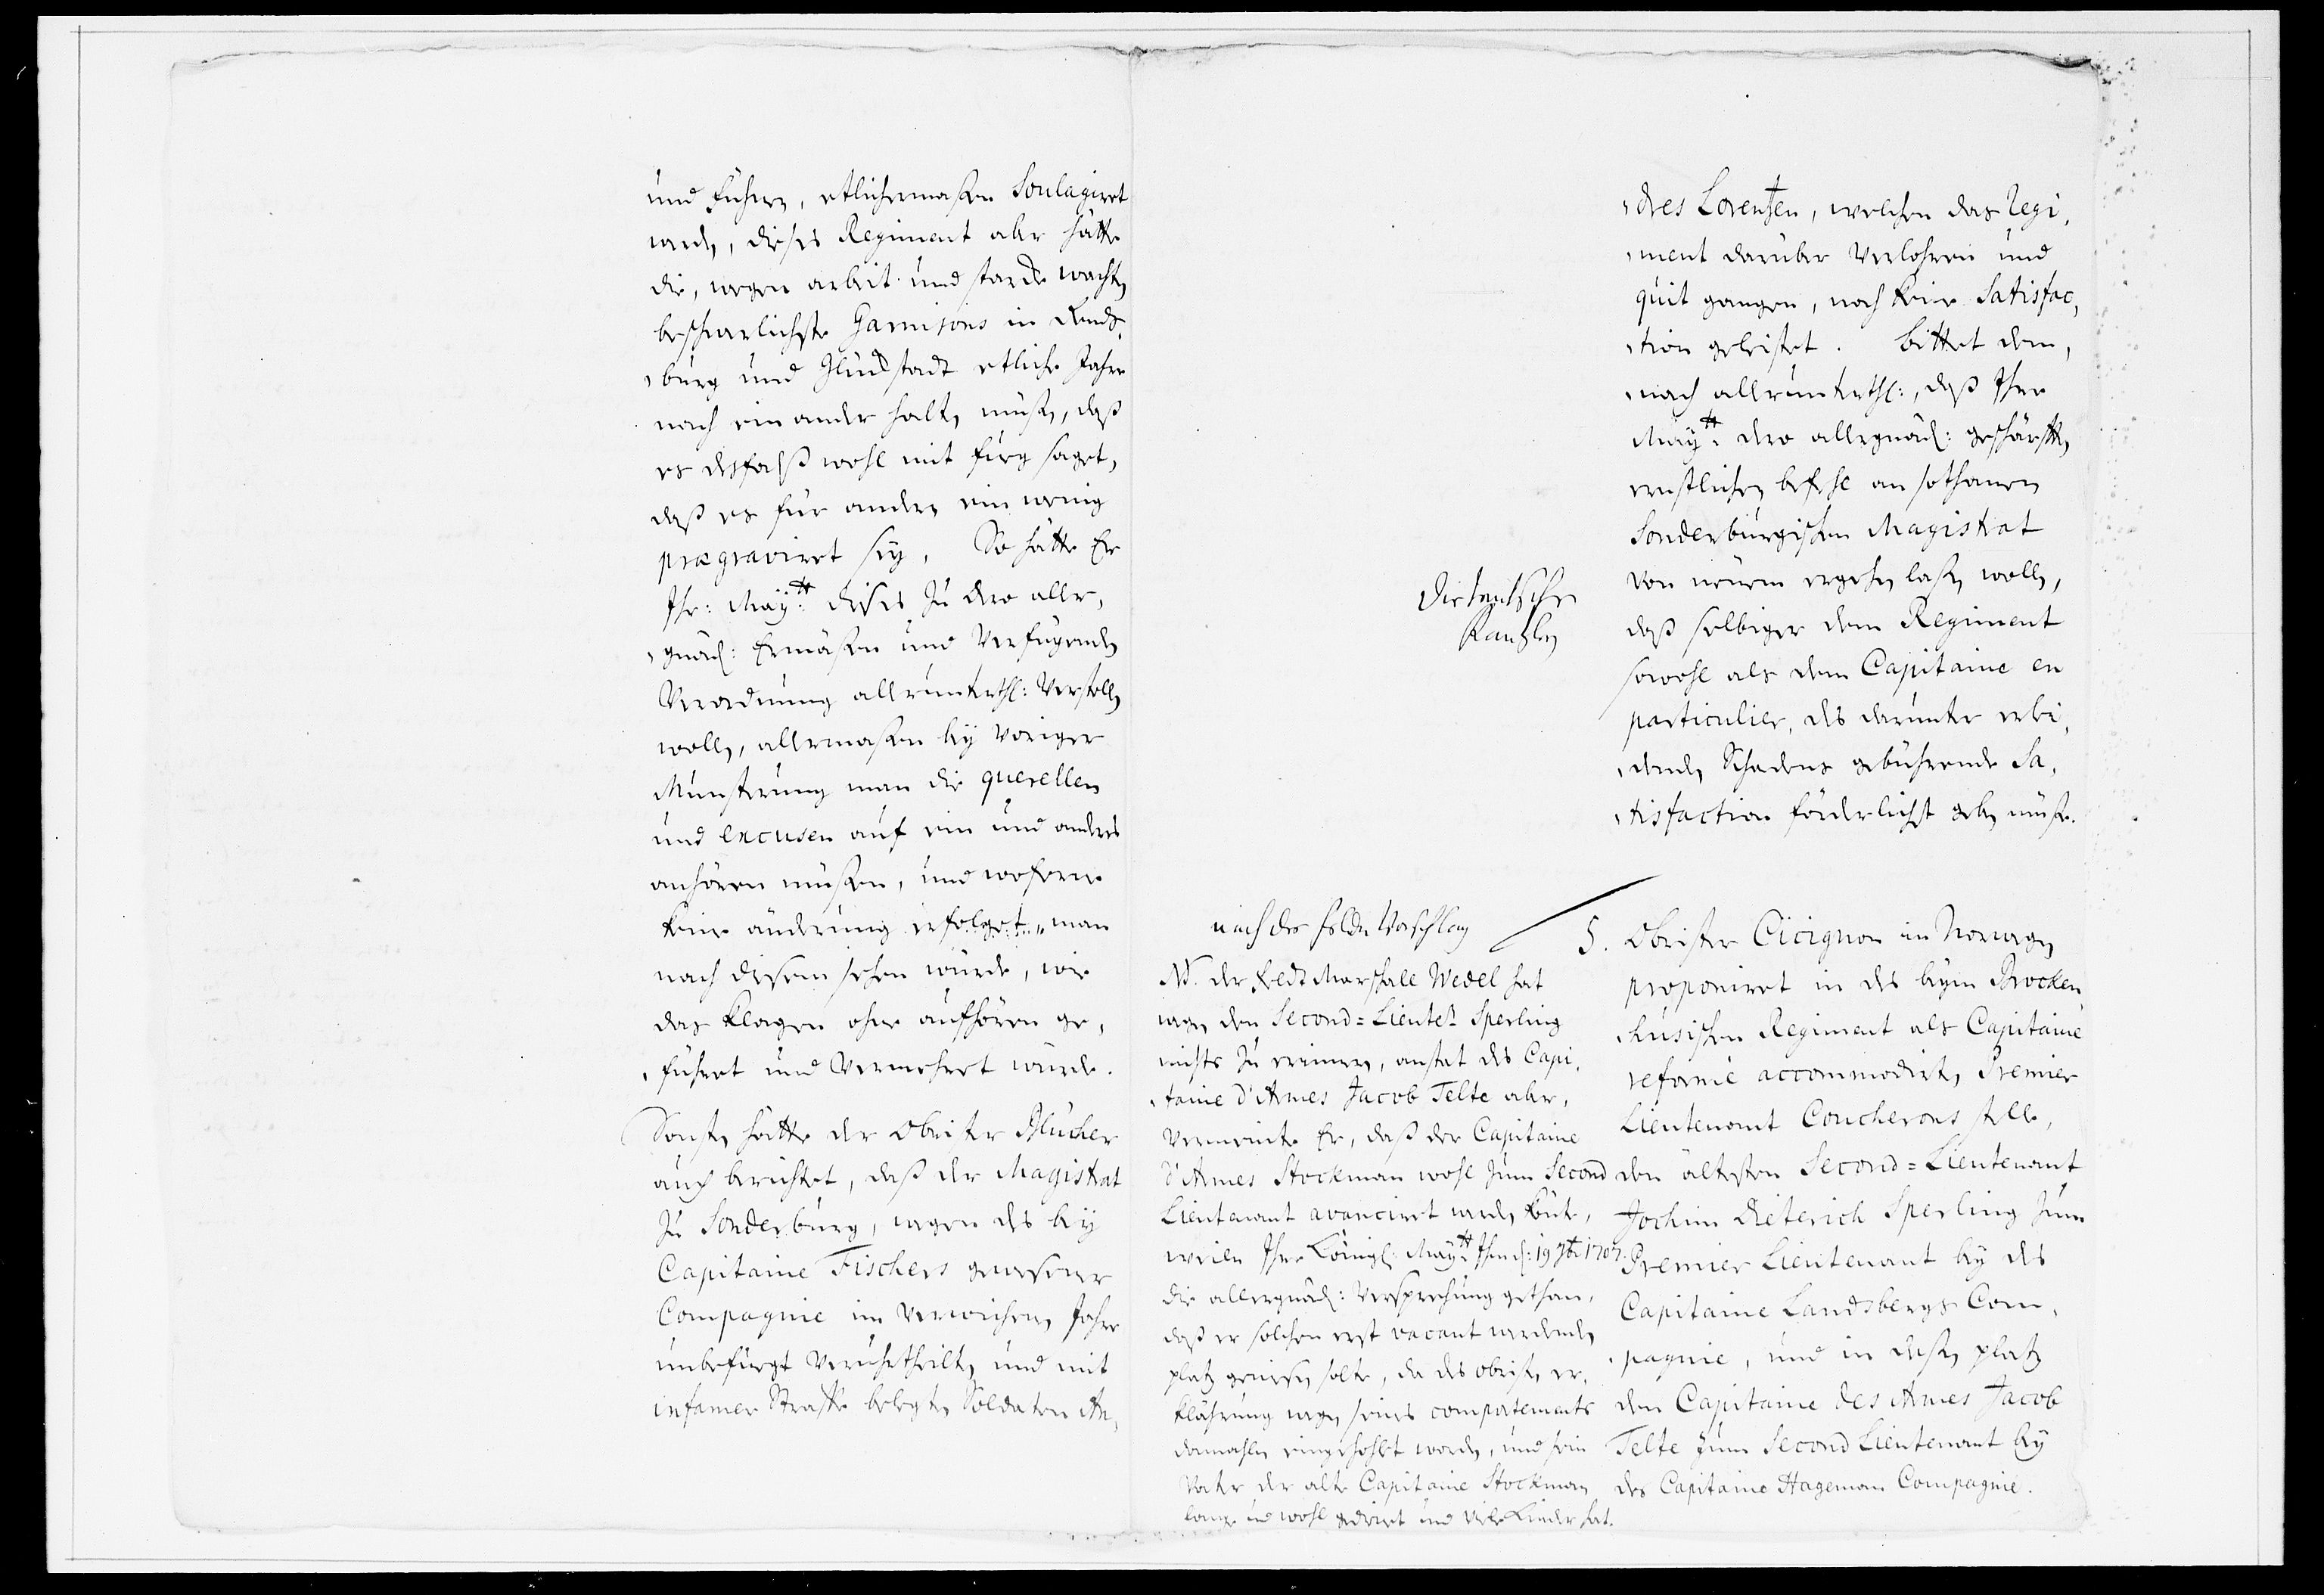 und führen, etlichermaßen Soulagiret
werde, dieses Regiment aber hätte
die, wegen arbeit und starcke wacht,
beschwerlichste Garnisons in Rends¬
burg und Glückstadt etliche Jahre
nach ein ander halten müßen, daß
es desfalß wohl mit fug saget,
daß es für andern ein wenig
prægraviret sey. So hätte Er
Ihr: Mayᵗᵗ: dieses zu dero aller¬
gnäd: Ermäßen und Verfügenden
Verordnung allerunterth: Verstellen
wollen, allermaßen bey voriger
Munsterung man die querellen
und excusen auf ein und anders
anhören müßen, und woferne
keine änderung erfolget, man
nach diesem sehen würde, wie
das klagen ohne aufhören ge¬
führet und Vermehret würde.
Sonsten hätte der Obrister Blücher
auch berichtet, daß der Magistrat
zu Sonderburg, wegen des bey
Capitaine Fischers gewesener
Compagnie im verwichenen Jahre
unbefugt Verurtheilten und mit
infamer Straffe belegten Soldaten An¬
dres Lorentzen, welchen das Regi¬
ment darüber Verlohren und
quit gangen, noch keine Satisfac¬
tion geleistet. Bittet dem¬
nach allerunterth:, daß Ihre
Mayᵗᵗ: dero allergnäd: geschärffte
ernstlichen befehl an sothanen
Sonderburgischen Magistrat
von neuem ergehen laßen wollen,
daß selbiger dem Regiment
sowohl als dem Capitaine en
particulier, des darunter erlei¬
denden Schadens gebührende Sa¬
tisfaction förderlichst geben müße.
Die teutsche
Kantzley
nach des feldm Vorschlag
NB. der Feldt Marschall Wedel hat
wegen den Second=Lieuteⁿ Sperling
nichts zu erinnern, anstat des Capi¬
taine d'Armes Jacob Telte aber,
Vermeinte Er, daß der Capitaine
d'Armes Stockman wohl zum Second
Lieutenant avanciret werden könte,
weilen Ihre Königl: Mayᵗᵗ Ihm d: 19 7br 1707.
die allergnäd: Versprechung gethan,
daß er solchen erst vacant werdenden
platz genießen solte, da des Obristen er¬
klährung wegen seines comportements
damahlen eingehohlet worden, und sein
Vater der alte Capitaine Stockman
lange und wohl gedienet und viele Kinder hat.
5. Obrister Cicignon in Norwegen
proponiret in des beym Brocken¬
husischen Regiment als Capitaine
reformé accommodirten Premier
Lieutenant Coucherons stelle,
den ältesten Second=Lieutenant
Jochim Dieterich Sperling zum
Premier Lieutenant bey des
Capitaine Landsbergs Com¬
pagnie, und in deßen platz
den Capitaine des Armes Jacob
Telte zum Second Lieutenant bey
des Capitaine Hageman Compagnie.